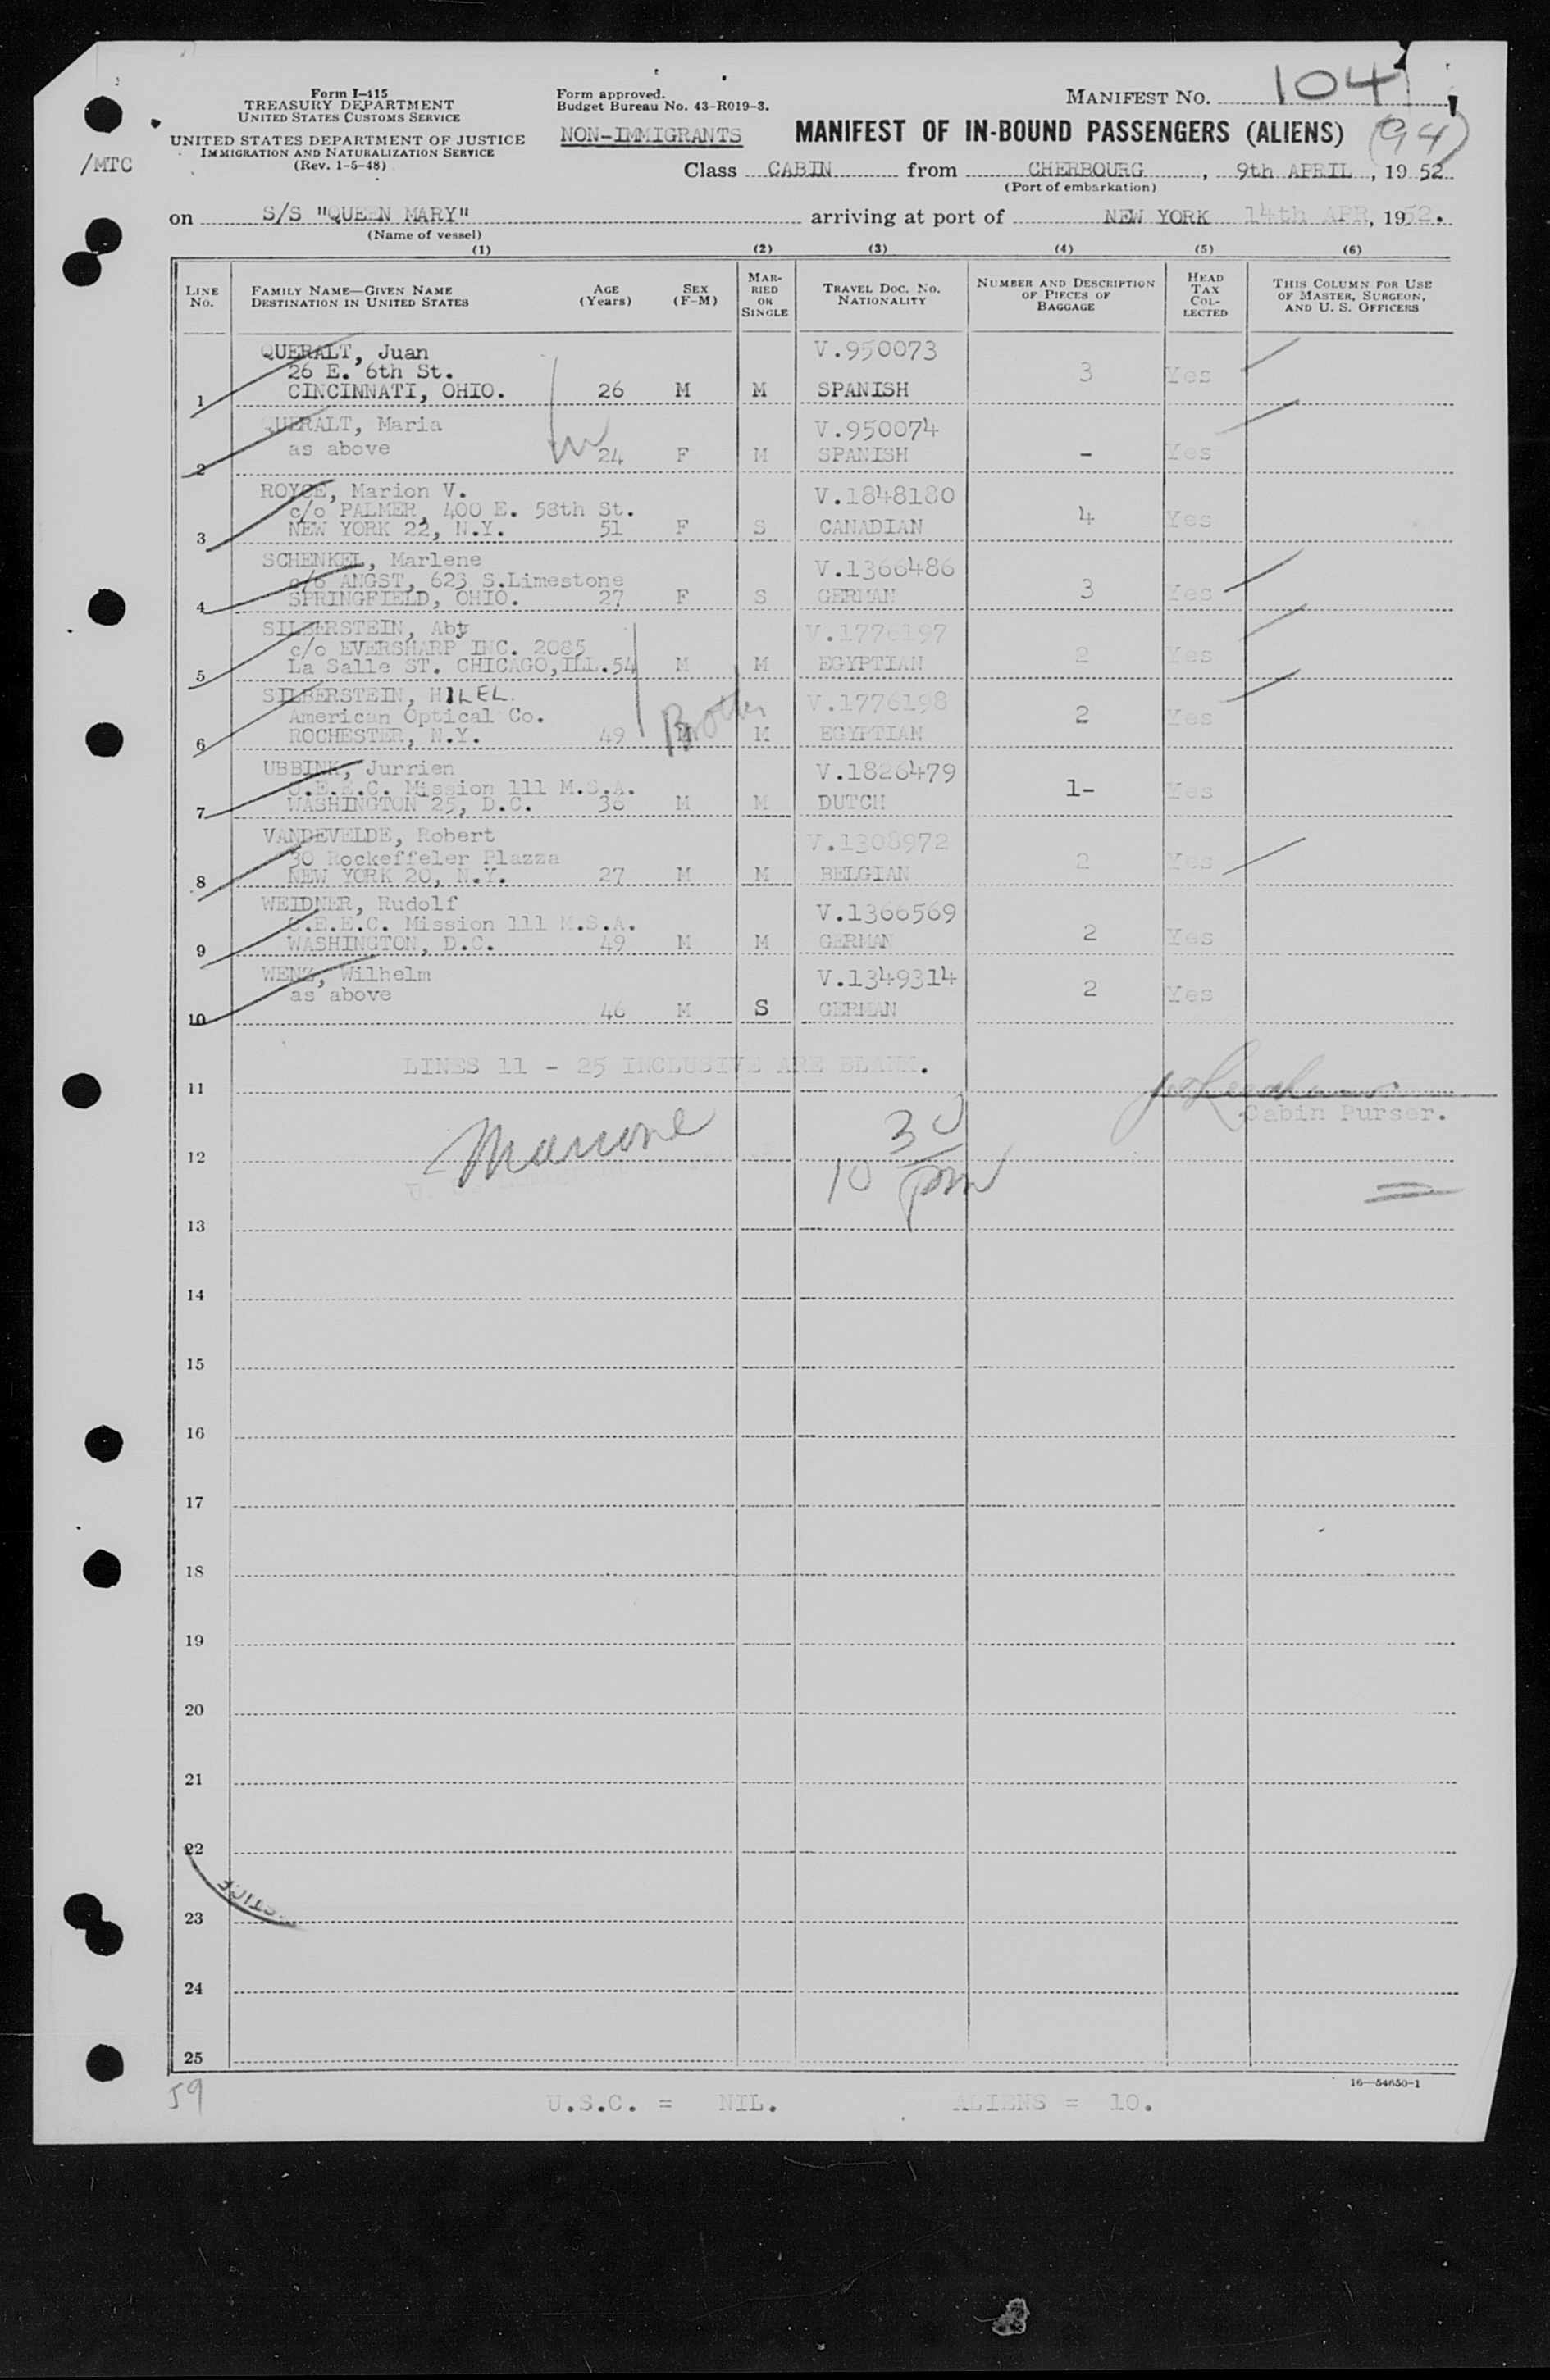 Form I-415
TREASURY DEPARTMENT
UNITED STATES CUSTOMS SERVICE
UNITED STATES DEPARTMENT OF JUSTICE
IMMIGRATION AND NATURALIZATION SERVICE
(Rev. 1-5-48)
/MTC
Form approved.
Budget Bureau No. 43-R019-3.
MANIFEST NO. 104
NON-IMMIGRANTS MANIFEST OF IN-BOUND PASSENGERS (ALIENS) (94)
Class CABIN from CHERBOURG, 9th APRIL, 1952
(Port of embarkation)
on S/S "QUEEN MARY" arriving at port of NEW YORK 14th APR, 1952.
(Name of vessel)
(1) (2) (3) (4) (5) (6)
LINE NO. FAMILY NAME—GIVEN NAME DESTINATION IN UNITED STATES AGE (Years) SEX (F-M) MARRIED OR SINGLE TRAVEL DOC. NO. NATIONALITY NUMBER AND DESCRIPTION OF PIECES OF BAGGAGE HEAD TAX COLLECTED THIS COLUMN FOR USE OF MASTER, SURGEON, AND U. S. OFFICERS
QUERALT, Juan V.950073
26 E. 6th St. 3 Yes
1 CINCINNATI, OHIO. 26 M M SPANISH
QUERALT, Maria V.950074
as above
2 24 F M SPANISH - Yes
ROYCE, Marion V. V.1848180
c/o PALMER, 400 E. 58th St. 4 Yes
3 NEW YORK 22, N.Y. 51 F S CANADIAN
SCHENKEL, Marlene V.1366486
c/o ANGST, 623 S.Limestone 3 Yes
4 SPRINGFIELD, OHIO. 27 F S GERMAN
SILBERSTEIN, V.1776197
c/o EVERSHARP INC. 2085 2 Yes
5 La Salle ST. CHICAGO, ILL. 54 M M EGYPTIAN
SILBERSTEIN, HILEL V.1776198
American Optical Co. 2 Yes
6 ROCHESTER, N.Y. 49 M M EGYPTIAN
Brother
UBBINK, Jurrien V.1826479
O.E.E.C. Mission 111 M.S.A. 1- Yes
7 WASHINGTON 25, D.C. 36 M M DUTCH
VANDEVELDE, Robert V.1308972
30 Rockeffeler Plazza 2 Yes
8 NEW YORK 20, N.Y. 27 M M BELGIAN
WEIDNER, Rudolf V.1366569
O.E.E.C. Mission 111 M.S.A. 2 Yes
9 WASHINGTON, D.C. 49 M M GERMAN
WENZ, Wilhelm V.1349314
as above 2 Yes
10 46 M S GERMAN
LINES 11 - 25 INCLUSIVE ARE BLANK.
11
Cabin Purser.
12 10 30 pm
13
14
15
16
17
18
19
20
21
22
23
24
25
16—54650-1
59
U.S.C. = NIL. ALIENS = 10.